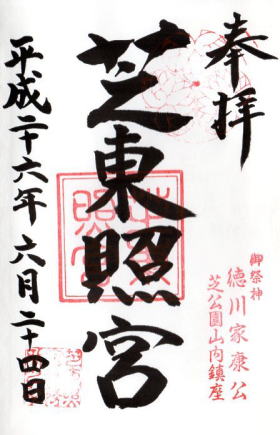 奉拝
御祭神
徳川家康公
芝公園山内鎮座
芝東照宮
平成二十六年六月二十四日